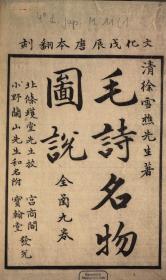 4° L. jap. M 11(1)
文化戊辰唐本翻刻
清徐雪樵先生著
毛詩名物
圖說 全圖九卷
北條蠖堂先生校
小野蘭山先生和名附
宮商閣
寶翰堂 發兌